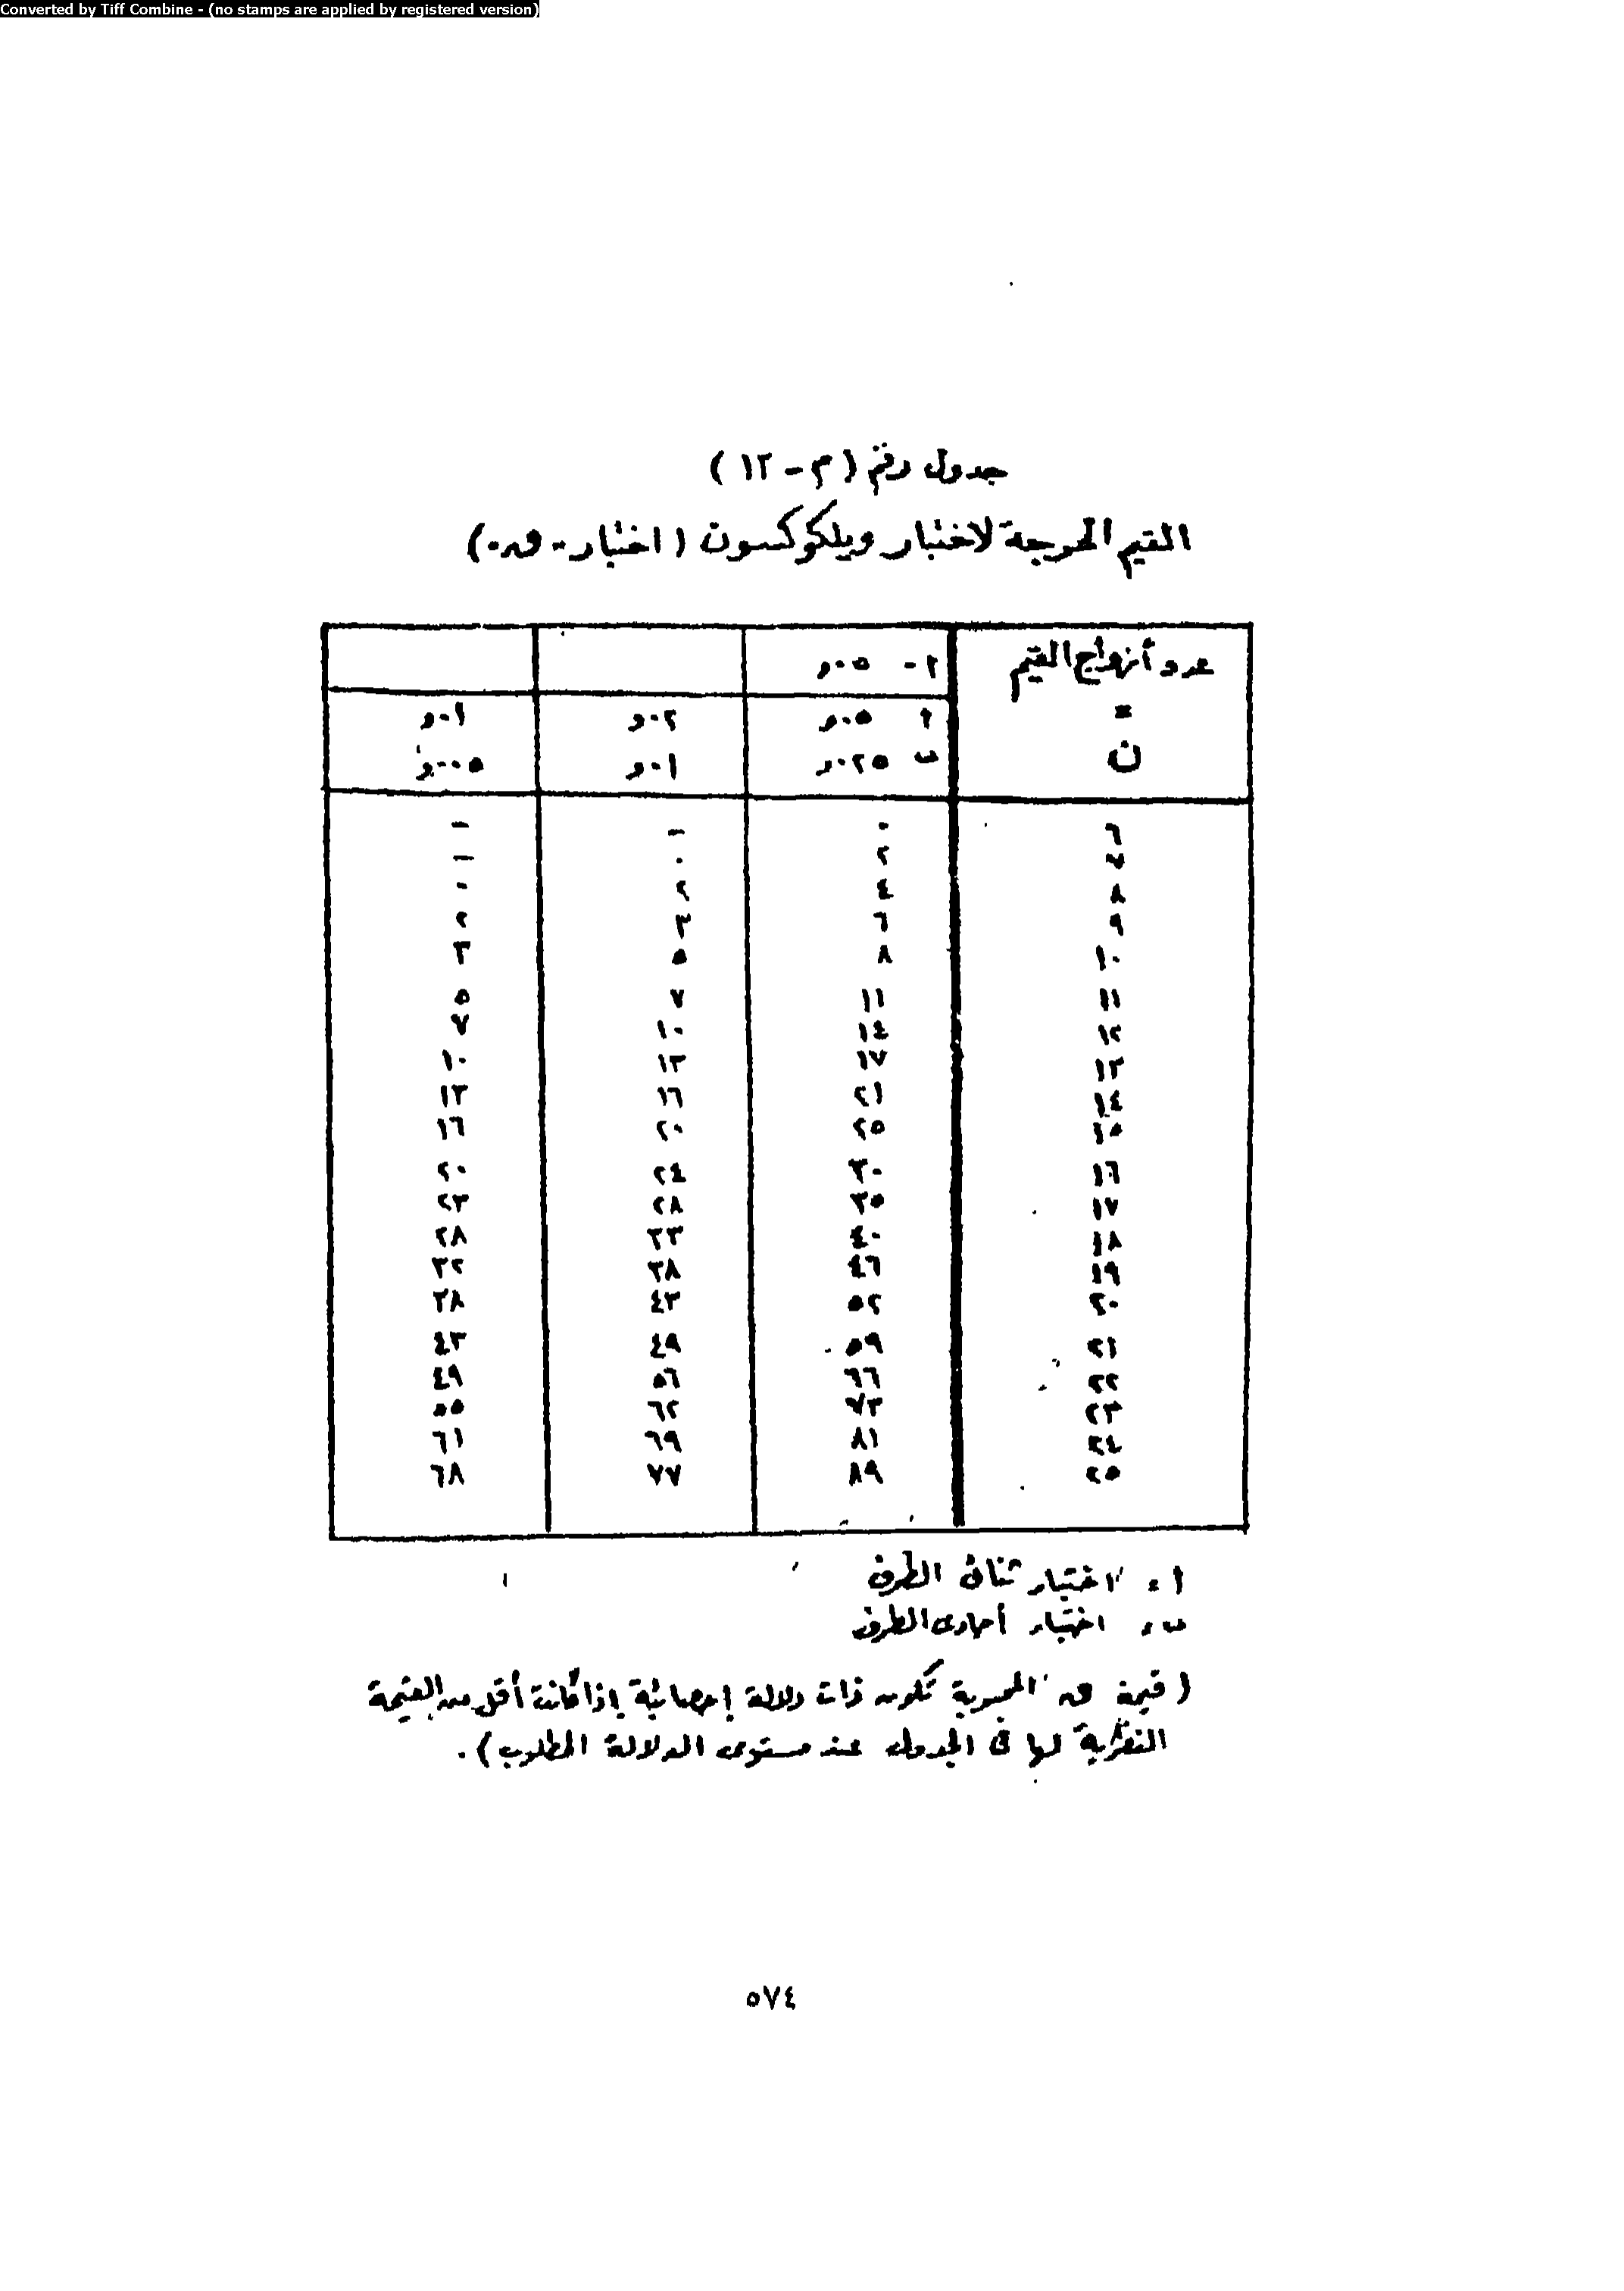 Converted by Tiff Combine - (no stamps are applied by registered version)
جدول رقم (م - ١٢)
القيم الحرجة لاختبار ويلكوكسون (اختبار - و.)
عدد أزواج القيم أ - ٠٥و
= أ ٠٥و ٠٢و ٠١و
ن ب ٠٢٥و ٠١و ٠٠٥و
٦ ٠ – –
٧ ٢ ٠ –
٨ ٤ ٢ ٠
٩ ٦ ٣ ٢
١٠ ٨ ٥ ٣
١١ ١١ ٧ ٥
١٢ ١٤ ١٠ ٧
١٣ ١٧ ١٣ ١٠
١٤ ٢١ ١٦ ١٣
١٥ ٢٥ ٢٠ ١٦
١٦ ٣٠ ٢٤ ٢٠
١٧ ٣٥ ٢٨ ٢٣
١٨ ٤٠ ٣٣ ٢٨
١٩ ٤٦ ٣٨ ٣٢
٢٠ ٥٢ ٤٣ ٣٨
٢١ ٥٩ ٤٩ ٤٣
٢٢ ٦٦ ٥٦ ٤٩
٢٣ ٧٣ ٦٢ ٥٥
٢٤ ٨١ ٦٩ ٦١
٢٥ ٨٩ ٧٧ ٦٨
أ = اختبار ثنائى الطرف
ب = اختبار أحادى الطرف
(قيمة و المحسوبة تكون ذات دلالة إحصائية إذا كانت أقل من القيمة
النظرية لها فى الجدول عند مستوى الدلالة المطلوب).
٥٧٤